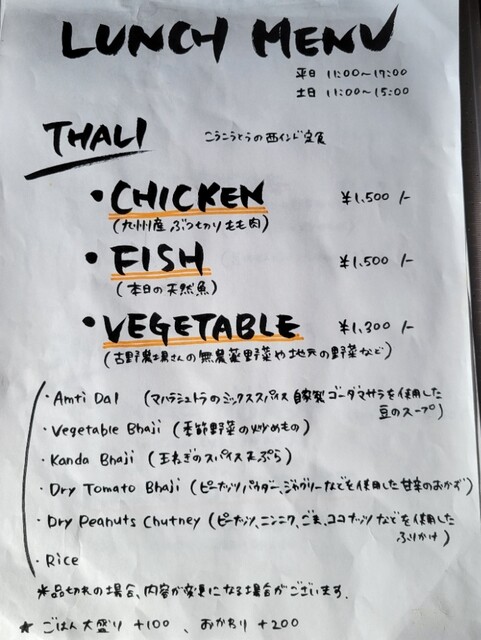 LUNCH MENU
平日 11:00〜17:00
土日 11:00〜15:00
THALI こうこうとうの西インド定食
・CHICKEN ¥1,500 /-
(九州産 ぶつ切りもも肉)
・FISH ¥1,500 /-
(本日の天然魚)
・VEGETABLE ¥1,300 /-
(古野農場さんの無農薬野菜や地元の野菜など)
・Amti Dal (マハラシュトラのミックススパイス 自家製ゴーダマサラを使用した
豆のスープ)
・Vegetable Bhaji (季節野菜の炒めもの)
・Kanda Bhaji (玉ねぎのスパイス天ぷら)
・Dry Tomato Bhaji (ピーナッツパウダー、ジャグリーなどを使用した甘辛のおかず)
・Dry Peanuts Chutney (ピーナッツ、ニンニク、ごま、ココナッツなどを使用した
ふりかけ)
・Rice
※品切れの場合、内容が変更になる場合がございます.
★ ごはん大盛り +100 、おかわり +200